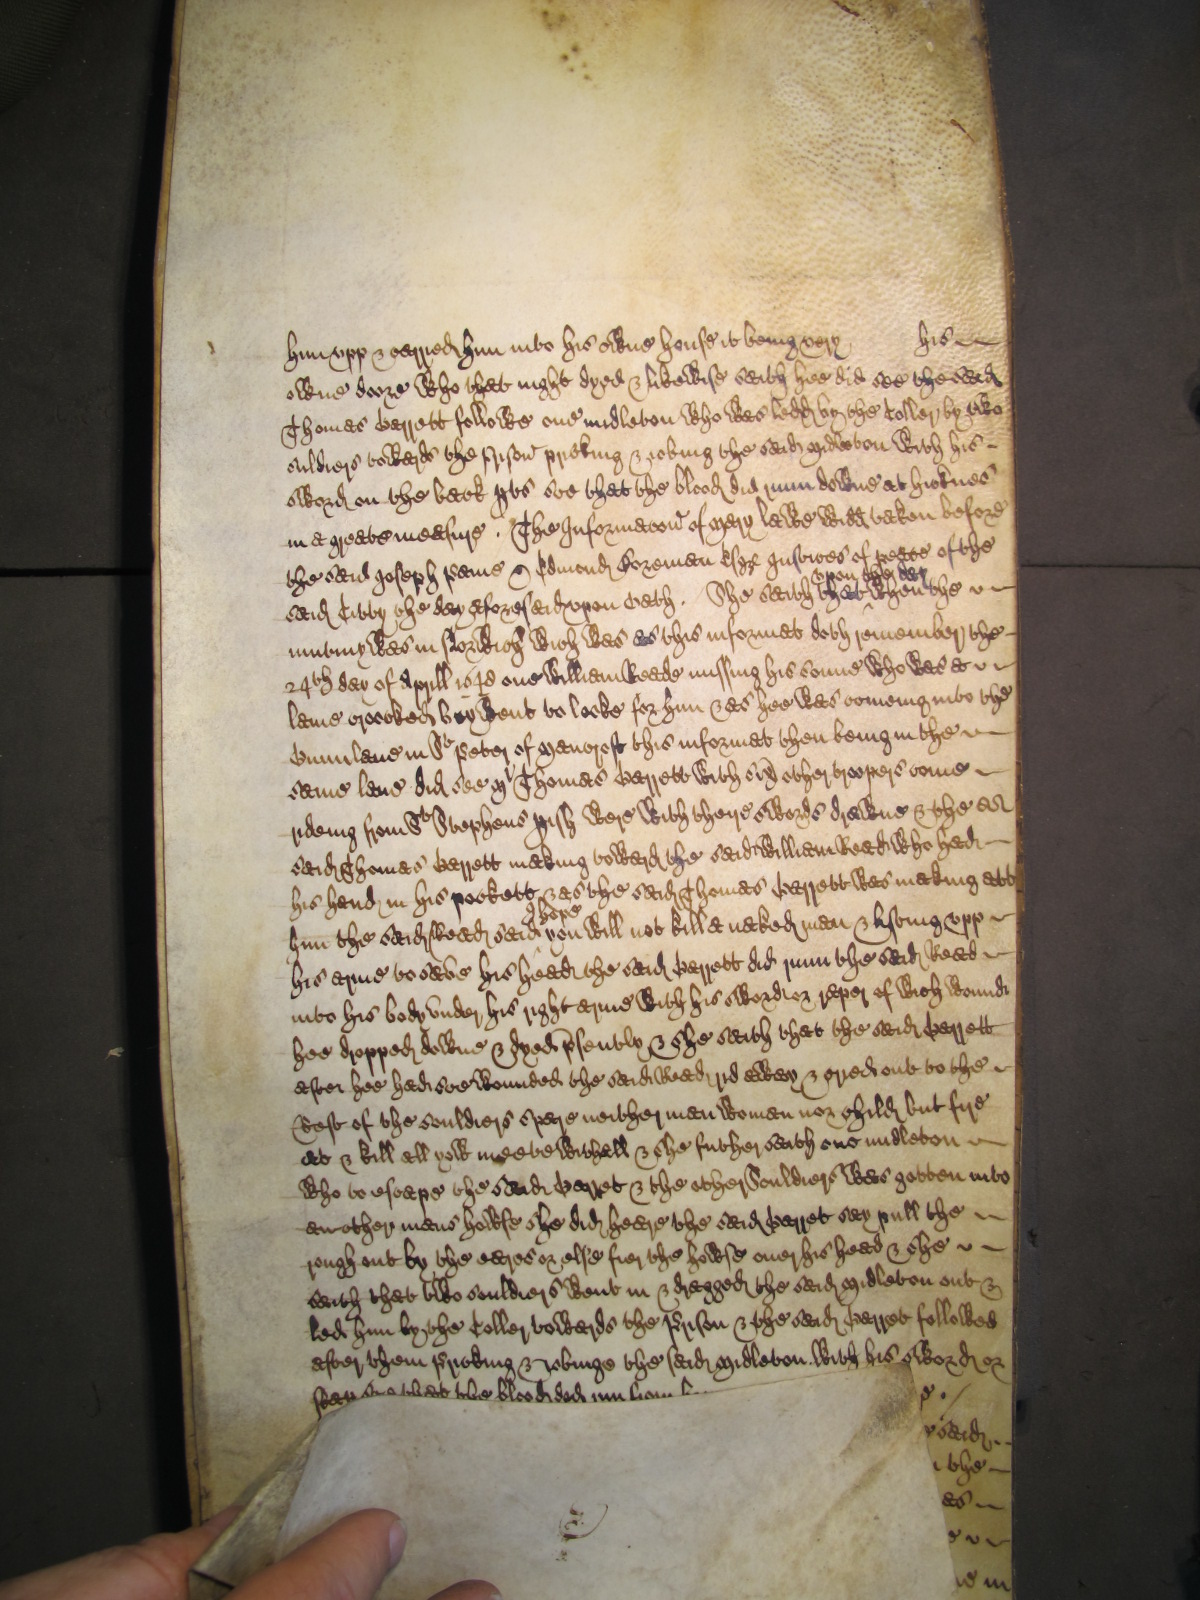 him upp & carried him into his owne house it being very his
owne doore who that night dyed & likewise saith hee did see the said
Thomas Barrett followe one midleton who was ledd by the Coller by two
suldiers towards the prison pricking & iobing the said midleton with his
sword on the back pts soe that the blood did runn downe at his knees
in a greate measure . The Informacon of Mary Lawe Widd taken before
the said Joseph Paine & Edmond Boreman Esqr Justices of peace of the
said Citty the day aforesaid upon Oath . She saith
upon the day
that when the
mutiny was in Norwich wich was as this informat doth remember the
24th day of Aprill 1648 one William Reade missing his sonne who was a
lame crooked boy went to looke for him & as hee was comeing into the
lane in St Peter of Mancroft this informat then being in the
same lane did see Mr Thomas Barrett with six other troopers come
rideing from St Stephens pish were with there swords drawne & the
said Thomas Barrett making toward the said William Read who had
his hand in his pockett & as the said Thomas Barrett was making att
I hope
him the said Read said you will not kill a naked man & lifting upp
his arme to save his head the said Barrett did runn the said Read
into his body under his right arme with his sword or raper of wich wound
hee dropped downe & dyed psently & she saith that the said Barrett
after hee had soe wounded the said Read rid away & cryed out to the
rest of the souldiers spare neither man woman nor child but fire
at & kill all yow meete withall & she futher saith one midleton
who to escape the said Barret & the other Souldiers was gotten into
another mans howse she did heare the said Barret say pull the
rough out by the eares or else fier the howse over his head & she
saith that two souldiers went in & dragged the said Midleton out &
led him by the Coller towards the Prison & the said Barret followed
after them Pricking & iobinge the said Midleton with his sword or
soe that the blood did run from
said
the
as
in